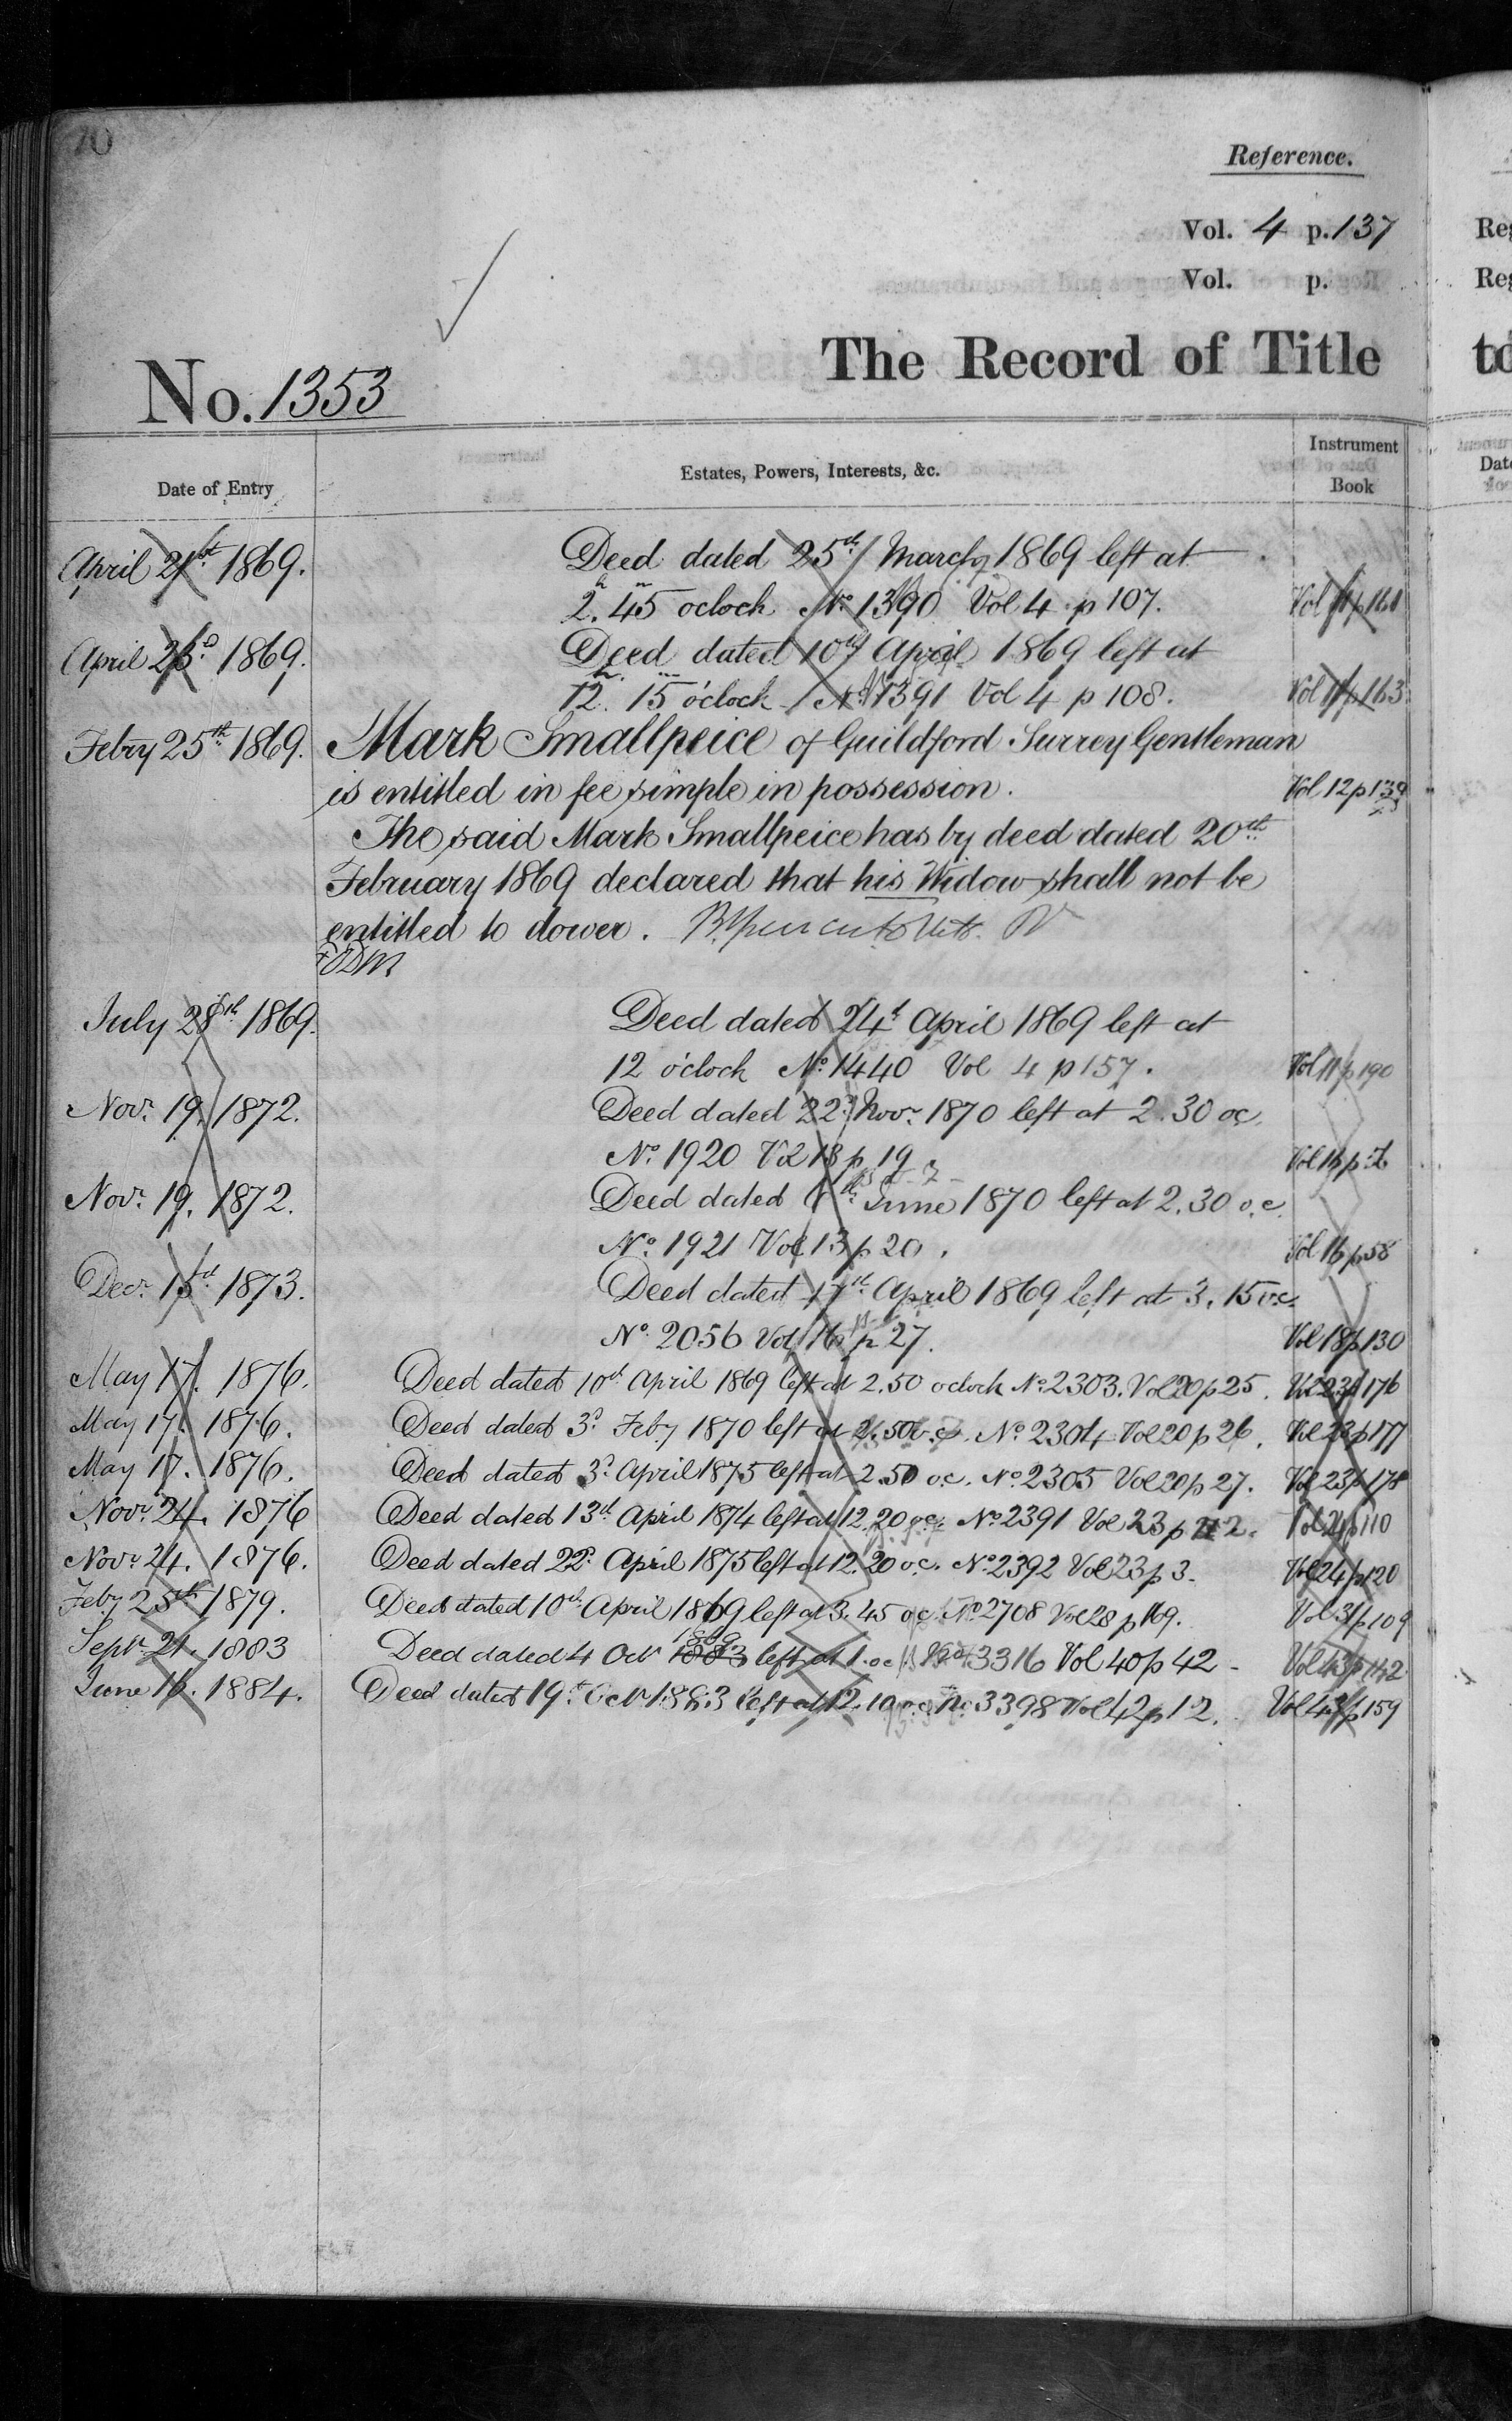 70
Reference.
Vol. 4 p. 137
Vol. p.
The Record of Title
No. 1353
Date of Entry
Estates, Powers, Interests, &c.
Instrument Book
April 21st 1869. Deed dated 25th March 1869 left at
2h. 45m oclock No. 1390 Vol 4 p 107. Vol 11 p 161
April 23d 1869. Deed dated 10th April 1869 left at
12h. 15m o'clock No. 1391 Vol 4 p 108. Vol 11 p 163
Febry 25th 1869. Mark Smallpeice of Guildford Surrey Gentleman
is entitled in fee simple in possession. Vol 12 p 139
The said Mark Smallpeice has by deed dated 20th
February 1869 declared that his Widow shall not be
entitled to dower.
July 28th 1869. Deed dated 24th April 1869 left at
12 o'clock No. 1440 Vol 4 p 157. Vol 11 p 190
Novr. 19. 1872. Deed dated 22d Novr. 1870 left at 2.30 oc.
No. 1920 Vol 13 p 19. Vol 16 p
Novr. 19. 1872. Deed dated June 1870 left at 2.30 o.c.
No. 1921 Vol 13 p 20. Vol 16 p 58
Decr. 1873. Deed dated 17th April 1869 left at 3.15 o.c.
No. 2056 Vol 16 p 27. Vol 18 p 130
May 17. 1876. Deed dated 10th April 1869 left at 2.50 oclock No. 2303. Vol 20 p 25. Vol 23 p 176
May 17. 1876. Deed dated 3d Feby 1870 left at 2.50 o.c. No. 2304 Vol 20 p 26. Vol 23 p 177
May 17. 1876. Deed dated 3d April 1875 left at 2.50 o.c. No. 2305 Vol 20 p 27. Vol 23 p 178
Novr. 24. 1876 Deed dated 13th April 1874 left at 12.20 o.c. No. 2391 Vol 23 p 2. Vol 24 p 110
Novr. 24. 1876. Deed dated 22d April 1875 left at 12.20 o.c. No. 2392 Vol 23 p 3. Vol 24 p 120
Feby 25th 1879. Deed dated 10th April 1869 left at 3.45 oc. No. 2708 Vol 28 p 169. Vol 31 p 109
1869
Septr. 21. 1883 Deed dated 4 Octr 1883 left at 1. oc No 3316 Vol 40 p 42 - Vol 43 p 142
June 16. 1884. Deed dated 19th Octr 1883 left at 12.10 o.c. No 3398 Vol 42 p 12. Vol 43 p 159